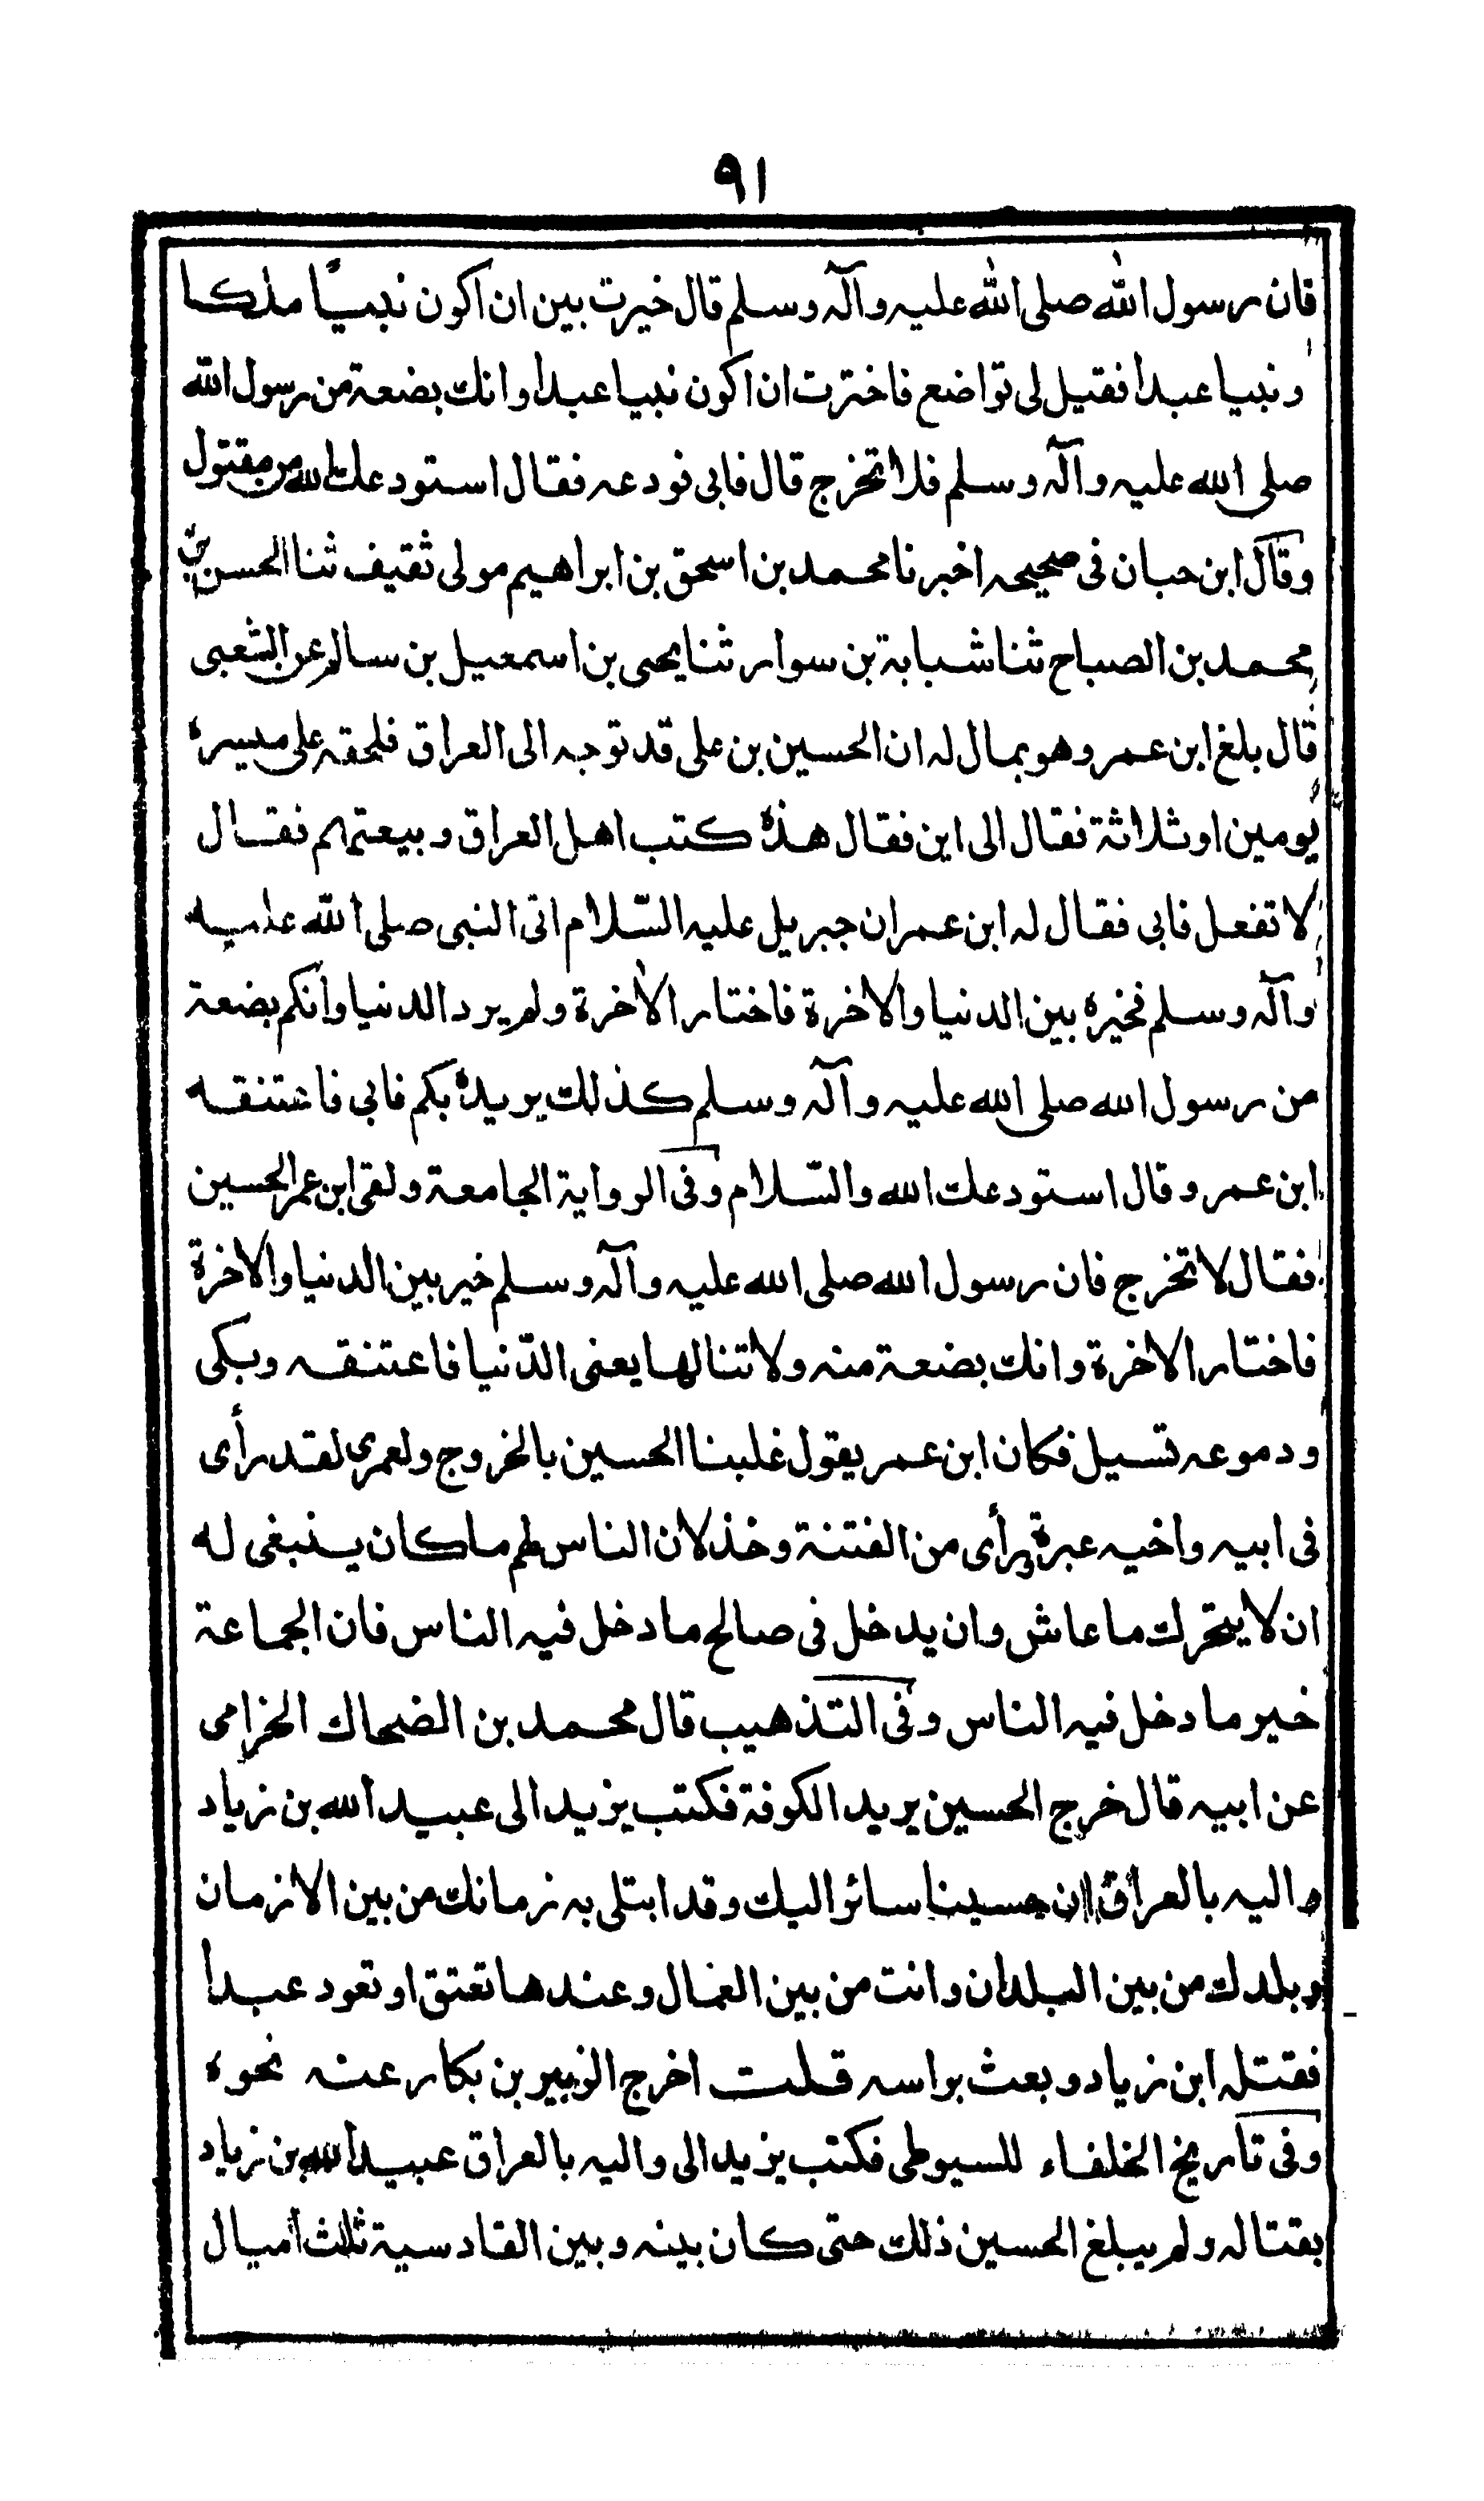 ٩١
فان رسول الله صلى الله عليه وآله وسلم قال خيرت بين ان اكون نبيًا ملكا
ونبيا عبدا فقيل لى تواضع فاخترت ان اكون نبيا عبدا وانك بضعة من رسول الله
صلى الله عليه وآله وسلم فلا تخرج قال فابى فودعه فقال استودعك الله من مقتول
وقال ابن حبان فى صحيحه اخبرنا محمد بن اسحق بن ابراهيم مولى ثقيف ثنا الحسن بن
محمد بن الصباح ثنا شبابة بن سوار ثنا يحيى بن اسمعيل بن سالم عن الشعبى
قال بلغ ابن عمر وهو بمال له ان الحسين بن على قد توجه الى العراق فلحقه على مسيرة
يومين او ثلاثة فقال الى اين فقال هذه كتب اهل العراق وبيعتهم فقال
لا تفعل فابى فقال له ابن عمر ان جبريل عليه السّلام اتى النبى صلى الله عليه
وآله وسلم فخيره بين الدنيا والاخرة فاختار الاخرة ولم يرد الدنيا وانكم بضعة
من رسول الله صلى الله عليه وآله وسلم كذلك يريده بكم فابى فاعتنقه
ابن عمر وقال استودعك الله والسّلام وفى الرواية الجامعة ولقى ابن عمر الحسين
فقال لا تخرج فان رسول الله صلى الله عليه وآله وسلم خير بين الدنيا والاخرة
فاختار الاخرة وانك بضعة منه ولا تنالها يعنى الدّنيا فاعتنقه وبكى
ودموعه تسيل فكان ابن عمر يقول غلبنا الحسين بالخروج ولعمرى لقد رأى
فى ابيه واخيه عبرة ورأى من الفتنة وخذلان الناس لهم ما كان ينبغى له
ان لا يتحرك ما عاش وان يدخل فى صالح ما دخل فيه الناس فان الجماعة
خير ما دخل فيه الناس وفى التذهيب قال محمد بن الضحاك الحزامى
عن ابيه قال خرج الحسين يريد الكوفة فكتب يزيد الى عبيد الله بن زياد
واليه بالعراق ان حسينا سائر اليك وقد ابتلى به زمانك من بين الازمان
وبلدك من بين البلدان وانت من بين العمال وعندها تعتق او تعود عبدا
فقتله ابن زياد وبعث براسه قلت اخرج الزبير بن بكار عنه نحوه
وفى تاريخ الخلفاء للسيوطى فكتب يزيد الى واليه بالعراق عبيد الله بن زياد
بقتاله ولم يبلغ الحسين ذلك حتى كان بينه وبين القادسية ثلث اميال